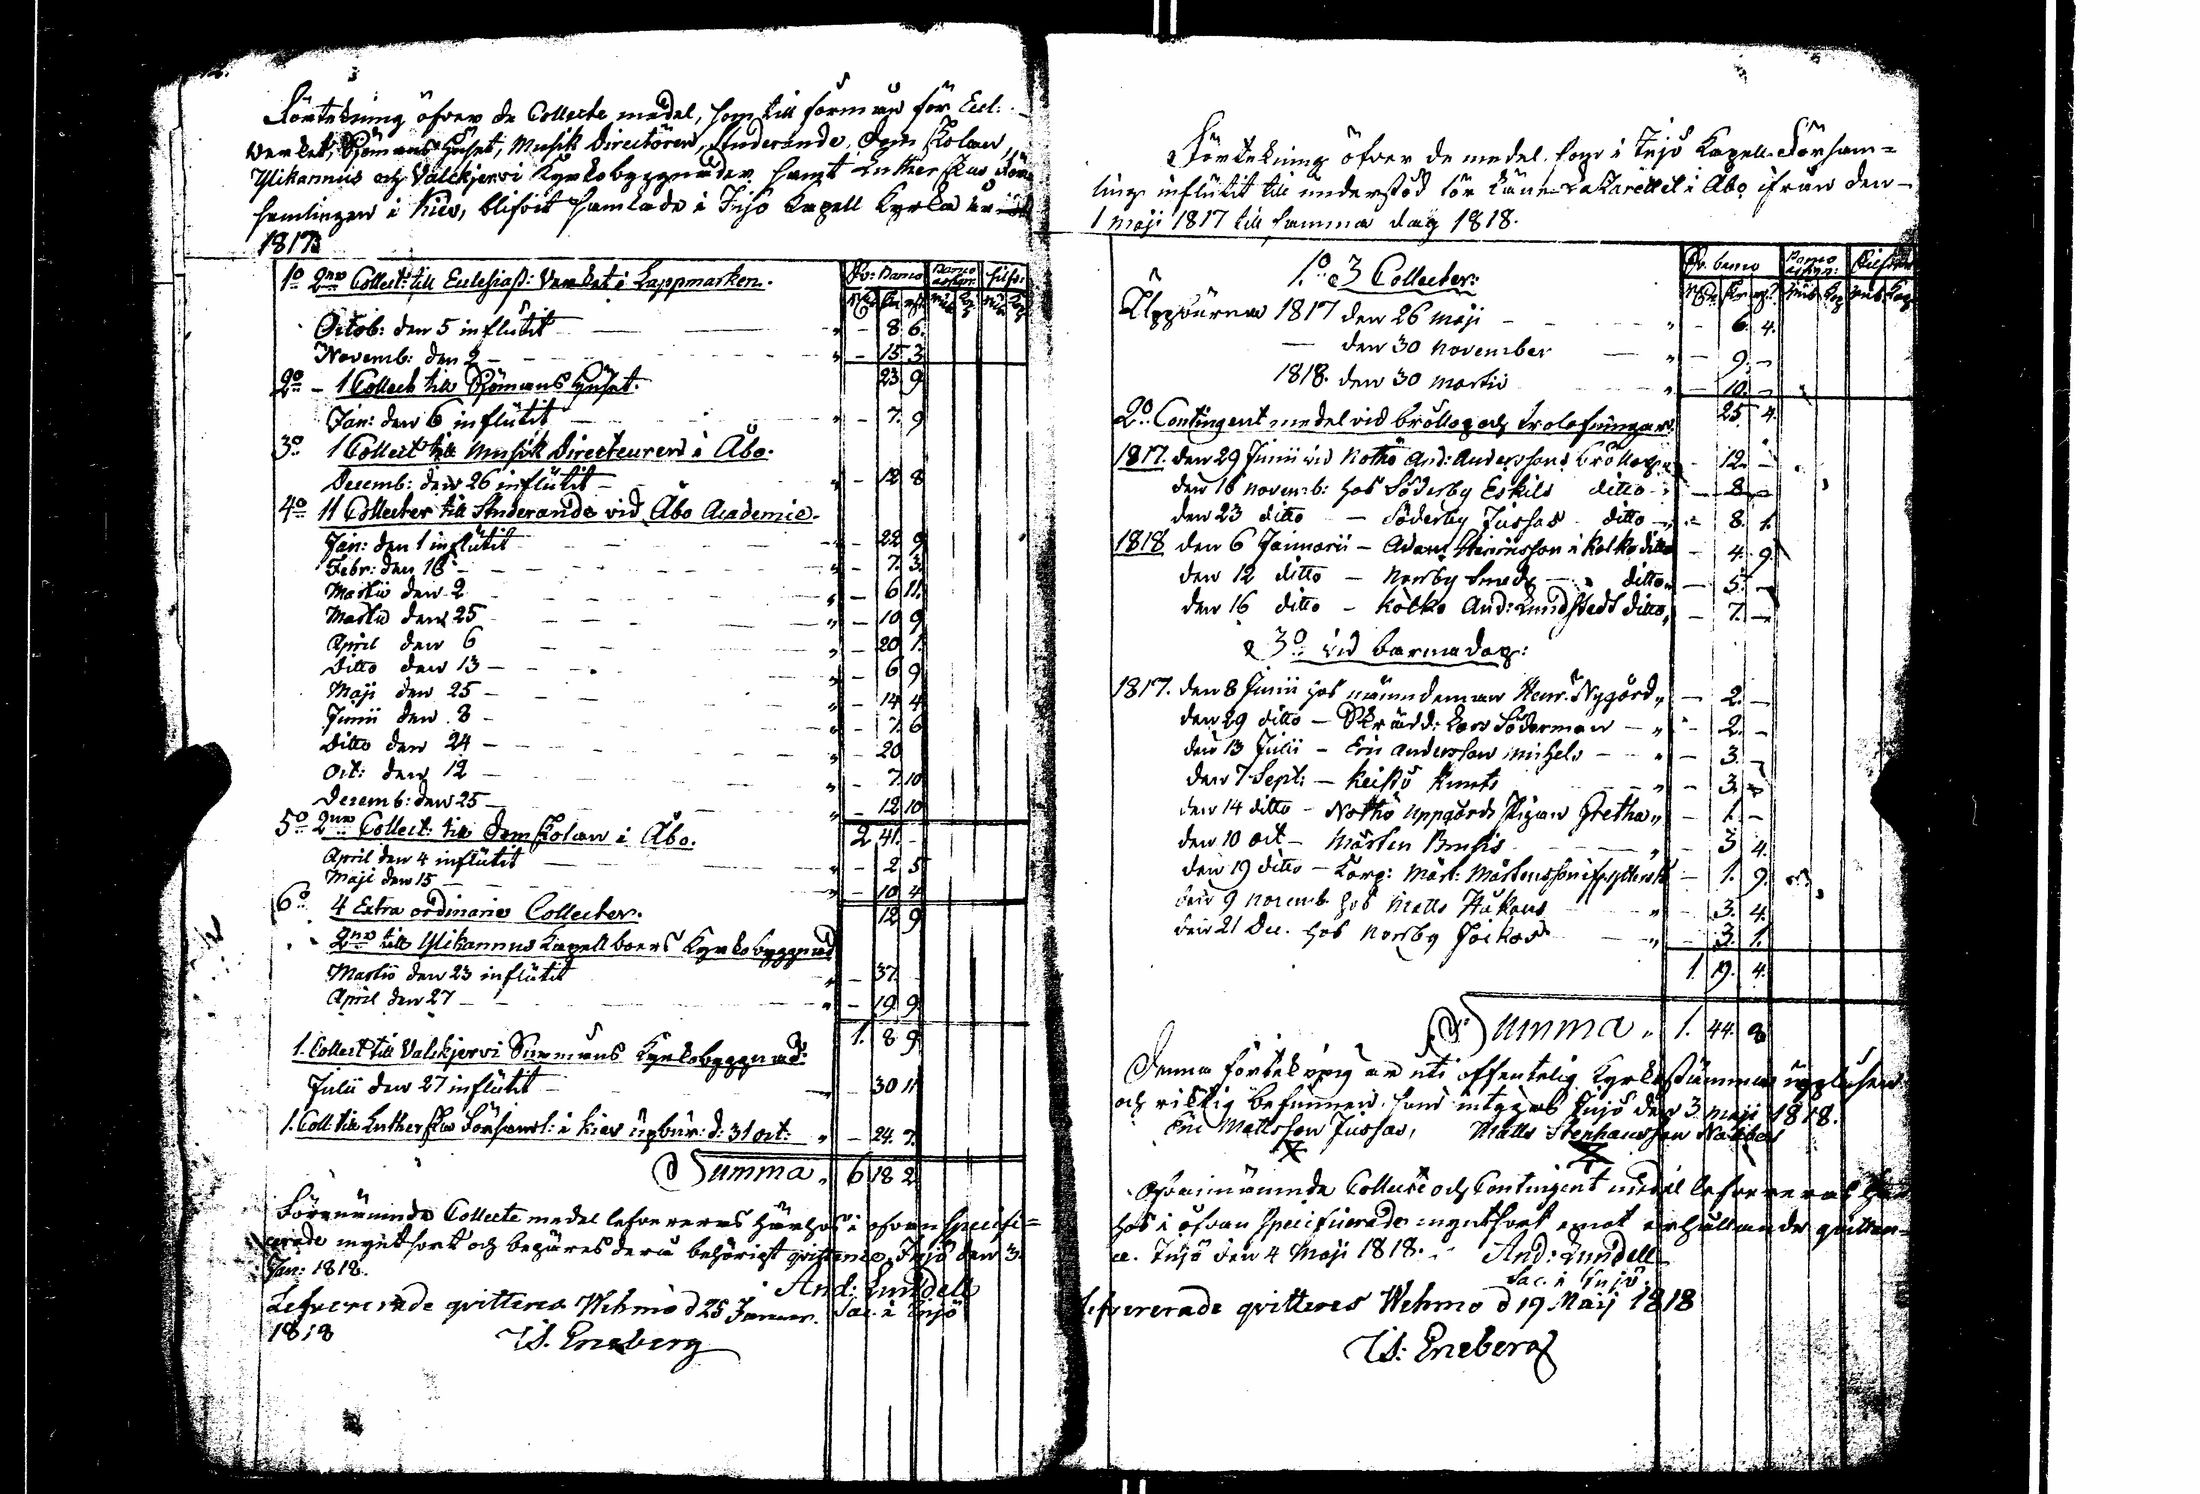 Förtekning öfver de Collecte medel, som till förmån för Eccl:
verket, Sjömans Huset, Musik Directören, Studerande, Dom Skolan,
Ylikannus och Valckjervi Kyrkobyggnader samt Lutherska För-
samlingen i Kiew, blifvit samlade i Iniö Kapell Kyrka
1817
1o 2ne Collect: till Ecclesiast: Verket i Lappmarken.
Rv: Banco
Octob: den 5 influtit - 8 6.
Novemb: den 2 - 15 3
23 9
2o 1 Collect till Sjömans Huset.
Jan: den 6 influtit - 7. 9
3o 1 Collect till Musik Directeuren i Åbo.
Decemb: den 26 influtit - 12 8
4o 11 Collecter till Studerande vid Åbo Academie.
Jan: den 1 influtit - 22 9
Febr: den 16 - 7. 3.
Martii den 2 - 6 11.
Martii den 25 - 10 9
April den 6 - 20 1.
Ditto den 13 - 6 9
Maji den 25 - 14 4
Junii den 8 - 7. 6
Ditto den 24 - 20
Oct: den 12 - 7. 10
Decemb: den 25 - 12 10
2 41. -
5o 2ne Collect: till Dom Skolan i Åbo.
April den 4 influtit - 2 5
Maji den 15 - 10 4
12 9
6o 4 Extra ordinarie Collecter.
2ne till Ylikannus Kapellboers Kyrkobyggnad
Martii den 23 influtit - 37.
April den 27 - 19 9
1. 8 9
1. Collect till Valckjervi Kyrkobyggnad:
Julii den 27 influtit - 30 11
1. Coll: till Lutherska Församl: i Kiev uppbur: d: 31 Oct: - 24. 7.
Summa 6 18 2
Förenämnde Collecte medel lefvereras härhos i ofvan specifi-
cerade myntsort och begäres deröfver behörigt qvittence. Iniö den 3.
Jan: 1818.
And: Lundell
Sac: i Iniö
Lefvererade qvitteres Wehmo d 25 Januar.
1818
Is. Eneberg
Förtekning öfver de medel, som i Iniö Kapell Församl-
ling influtit till understöd för Lazarettet i Åbo ifrån den
1 Maji 1817 till samma dag 1818.
Rv. banco
1.o 3 Collecter:
Uppburne 1817 den 26 Maji - 6. 4.
den 30 November - 9. -
1818. den 30 Martii - 10. -
25. 4.
2o Contingent medel vid bröllop och trolofningar.
1817. den 29 Junii vid Nothö And: Anderssons bröllop - 12. -
den 16 Novemb: hos Söderby Eskils ditto - 8 -
den 23 ditto - Söderby Jussas ditto - 8. 1.
1818 den 6 Januarii - Adam Henricsson i Kolko ditto - 4. 9
den 12 ditto - Norrby Smeds ditto - 5. -
den 16 ditto - Kolko And: Lundstedt ditto - 7. -
3o vid barnadop:
1817. den 8 Junii hos nämndeman Henr: Nygård - 2. -
den 29 ditto - Skrädd: Lars Söderman - 2. -
den 13 Julii - Eric Andersson Michels - 3. -
den 7 Sept: - Keistö Knuts - 3. -
den 14 ditto - Nothö Uppgårds Pigan Gretha - 1. -
den 10 Oct - Mårten Brusis - 3 4.
den 19 ditto - Korp: Mårt: Mårtensson - 1. 9.
den 9 Novemb hos Matts Håkans - 3. 4.
den 21 Dec. hos Norrby Jockas - 3. 1.
1. 19. 4.
Summa 1. 44. 8
Denna förtekning är uti offentelig Kyrkostämma uppläsen
och riktig befunnen, som intygas Iniö den 3 Maji 1818.
Eric Mattsson Jussas, Matts Stephansson
Ofvannämnde Collect och Contingent medel lefvereras här
hos i ofvan specificerade myntsort emot erhållande qvitten-
ce. Iniö den 4 Maji 1818. And: Lundell
Sac: i Iniö.
Lefvererade qvitteres Wehmo d 19 Maij 1818
Is: Eneberg